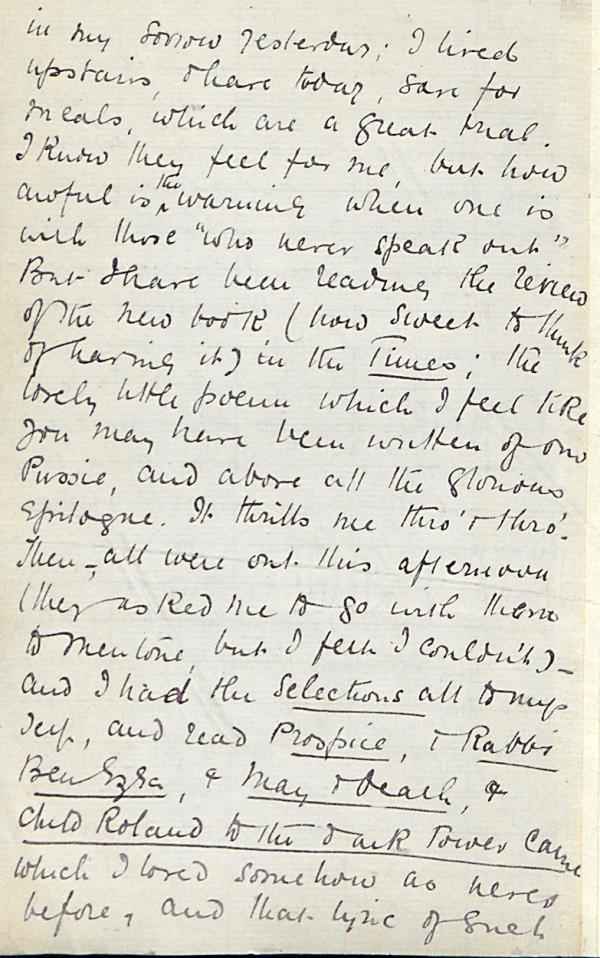 in my sorrow yesterday; I lived
upstairs, & have today, save for
meals, which are a great trial.
I know they feel for me, but how
awful is the warning when one is
with those "who never speak out"
But I have been reading the review
of the new book (how sweet to think
of having it) in the Times; the
lovely little poem which I feel like
you may have been written of our
Pussie, and above all the glorious
Epilogue. It thrills me thro' & thro'.
Then - all were out this afternoon
(they asked me to go with them
to Mentone, but I felt I couldn't) -
and I had the Selections all to my
self, and read Prospice, & Rabbi
Ben Ezra, & May & Death, &
Child Roland to the dark Tower Came
which I loved somehow as never
before, and that lyric of such